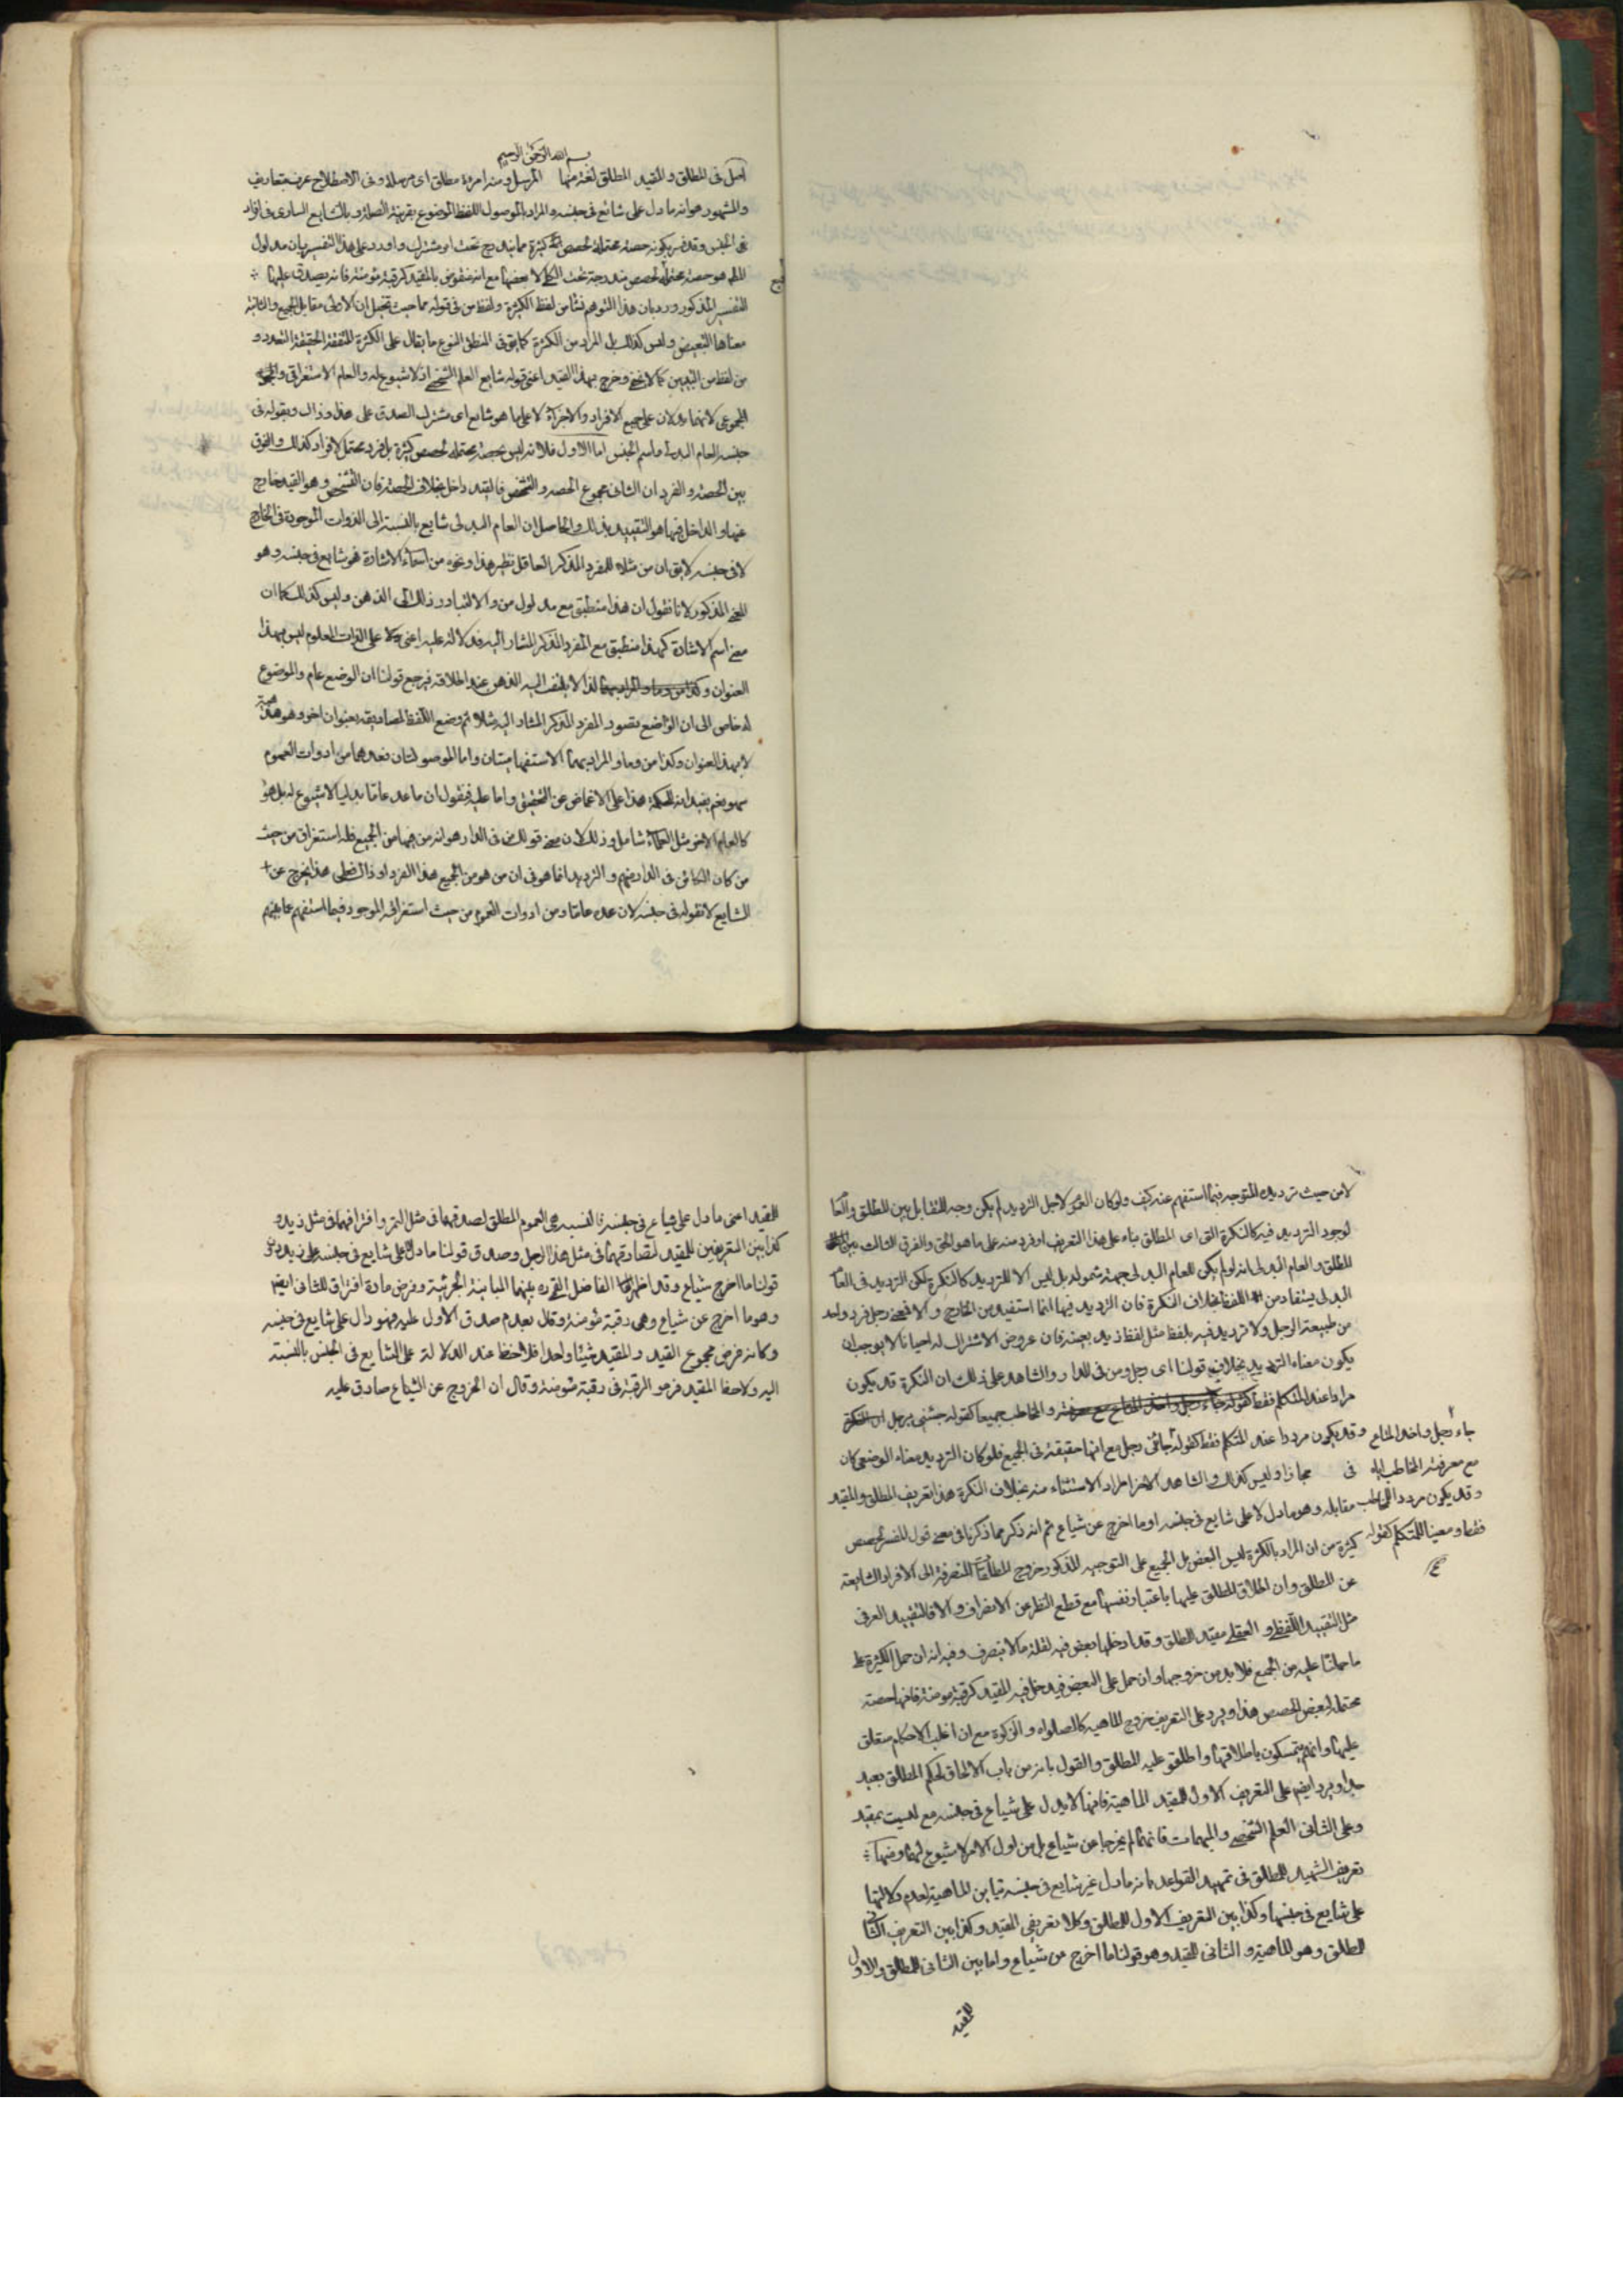 بسم الله الرحمن الرحيم
اصل فى المطلق والمقيد المطلق لغة منها المرسل ومنه امرءة مطلق اى مرسلة وفى الاصطلاح عرف بتعاريف
والمشهور هو انه ما دل على شائع فى جنسه والمراد بالموصول اللفظ الموضوع بقرينة الصلة وبالشايع السارى فى افراد
الجنس وقد فسر بكونه حصة محتملة لحصص كثيرة مما يندرج تحت امر مشترك واورد على هذا التفسير بان مدلول
المط هو حصة محتملة لحصص مندرجة تحت الكلى لا بعضها مع انه منقوض بالمقيد كرقبة مؤمنة فانه يصدق عليها
التفسير المذكور ورد بان هذا التوهم نشأ من لفظ الكثيرة ولفظ من فى قوله مما حيث تخيل ان الاولى مقابل الجميع والثانية
معناها التبعيض وليس كذلك بل المراد من الكثرة كما يق فى المنطق النوع ما يقال على الكثرة المتفقة الحقيقة التعدد و
من لفظ من التبيين كما لا يخفى وخرج بهذا القيد اعنى قوله شايع العلم الشخصى اذ لا شيوع له والعام الاستغراقى و
المجموعى لانهما يدلان على جميع الافراد والاجزاء لا على ما هو شايع اى مشترك الصدق على هذا وذاك وبقوله فى
جنسه العام البدلى واسم الجنس اما الاول فلانه ليس بحصة محتملة لحصص كثيرة بل فرد محتمل لافراد كذلك والفرق
بين الحصة والفرد ان الثانى مجموع الحصه والتشخص فالقيد داخل بخلاف الحصة فان التشخص وهو القيد خارج
عنها والداخل فيها هو التقييد بذلك والحاصل ان العام البدلى شايع بالنسبة الى الذوات الموجودة فى الخارج
لا فى جنسه لا يق ان من مثلا للمفرد المذكر العاقل نظير هذا ونحوه من اسماء الاشارة فهو شايع فى جنسه وهو
المعنى المذكور لانا نقول ان هذا منطبق مع مدلول من والا لتبادر ذلك الى الذهن وليس كذلك كما ان
معنى اسم الاشارة كهذا منطبق مع المفرد المذكر المشار اليه فدلالته عليه اعنى على الذات المعلوم ليس بهذا
العنوان ولذا لا يلتفت اليه الذهن عند اطلاقه فيرجع قولنا ان الوضع عام والموضوع
له خاص الى ان الواضع تصور المفرد المذكر المشار اليه مثلا ثم وضع اللفظ لمصاديقه بعنوان اخر وهو
لا بهذا العنوان وكذا من وما والمراد بهما الاستفهاميتان واما الموصولتان فعدهما من ادوات العموم
سهو نعم يفيد انه للحكمة هذا على الاغماض عن التحقيق واما عليه فيقول ان ما عد عاما بدليا لا شيوع له بل هو
كالعام الاخر مثل العلماء شامل وذلك لان معنى قولك من فى الدار هو انه من فيها من الجميع فله استغراق من حيث
من كان الكائن فى الدار منهم والترديد انما هو فى ان من هو من الجميع هذا الفرد او ذاك فعلى هذا يخرج عن
الشايع لا بقوله فى جنسه لان عده عاما ومن ادوات العموم من حيث استغراقه الموجود فيما استفهم عنه
لا من حيث ترديده المتوجه فيما استفهم عنه كيف ولو كان العموم لاجل الترديد لم يكن وجه للتقابل بين المطلق والعام
لوجود الترديد فيه كالنكرة التى اى المطلق بناء على هذا التعريف او فرد منه على ما هو الحق والفرق الثالث بين
المطلق والعام البدلى انه لو لم يكن للعام البدلى جهة شموله بل ليس الا للترديد كالنكرة لكن الترديد فى العام
البدلى يستفاد من اللفظ بخلاف النكرة فان الترديد فيها انما استفيد من الخارج والا فمعنى رجل فرد واحد
من طبيعة الرجل ولا ترديد فيه بلفظ مثل لفظ زيد بعينه فان عروض الاشتراك له احيانا لا يوجب ان
يكون معناه الترديد بخلاف قولنا اى رجل ومن فى الدار والشاهد على ذلك ان النكرة قد يكون
مرادا عند المتكلم فقط كقوله والمخاطب جميعا كقوله جئنى برجل
جاء رجل واخذ المتاع
مع معرفة المخاطب اياه
وقد يكون مرددا للمخاطب
فقط ومعينا للمتكلم كقوله
وقد يكون مرددا عند المتكلم فقط كقوله جائنى رجل مع انها حقيقة فى الجميع فلو كان الترديد معناه الوضعى كان
فى مجازا وليس كذلك والشاهد الاخر اطراد الاستثناء منه بخلاف النكرة هذا تعريف المطلق والمقيد
مقابله وهو ما دل لا على شايع فى جنسه او ما اخرج عن شياع ثم انه ذكر مما ذكرنا فى معنى قول المفسر لحصص
كثيرة من ان المراد بالكثرة ليس البعض بل الجميع على التوجيه المذكور خروج المطلقات المنصرفة الى الافراد الشايعة
عن المطلق وان اطلاق المطلق عليها باعتبار نفسها مع قطع النظر عن الانصراف والا فالتقييد العرفى
مثل التقييد اللفظى و العقلى مقيد للمطلق وقد ادخلها بعض فيه لقلة ما لا ينصرف وفيه انه ان حمل الكثيرة على
ما حملنا عليه من الجميع فلابد من خروجها وان حمل على البعض فيدخل فيه المقيد كرقبة مومنة فانها حصة
محتملة لبعض الحصص هذا ويرد على التعريف خروج الماهيه كالصلواه والزكوة مع ان اغلب الاحكام متعلق
عليها وانهم يتمسكون باطلاقها واطلقو عليه المطلق والقول بانه من باب الالحاق لحكم المطلق بعيد
جدا ويرد ايضا على التعريف الاول للمقيد الماهية فانها لا يدل على شياع فى جنسه مع ليست بمقيد
وعلى الثانى العلم الشخصى والمبهمات فانهما لم يخرجا عن شياع بل من اول الامر لا شيوع لهما ومنها
تعريف الشهيد للمطلق فى تمهيد القواعد بانه ما دل غير شايع فى جنسه تباين للماهية لعدم دلالتها
على شايع فى جنسها وكذا بين التعريف الاول للمطلق وكلا تعريفى المقيد وكذا بين التعريف الثانى
للمطلق وهو للماهية والثانى للمقيد وهو قولنا ما اخرج من شياع واما بين الثانى للمطلق والاول
للمقيد
للمقيد اعنى ما دل على شياع فى جنسه فالنسبه هى العموم المطلق لصدقهما فى مثل وافتراقهما فى مثل زيد و
كذا بين التعريفين للمقيد لتصادقهما فى مثل هذا الرجل وصدق قولنا ما دل لا على شايع فى جنسه على زيد دون
قولنا ما اخرج شياع وقد اظهر الفاضل بينهما المباينة الجزئية وفرض مادة افتراق للثانى ايضا
وهو ما اخرج عن شياع وهى رقبة مؤمنة وقال بعدم صدق الاول عليه فهو دال على شايع فى جنسه
وكانه فرض مجموع القيد والمقيد شيئا واحدا فلاحظنا عند الدلالة على الشايع فى الجنس بالنسبة
اليه ولاحظا المقيد فرمو الرقبة فى رقبة مؤمنة وقال ان الخروج عن الشياع صادق عليه